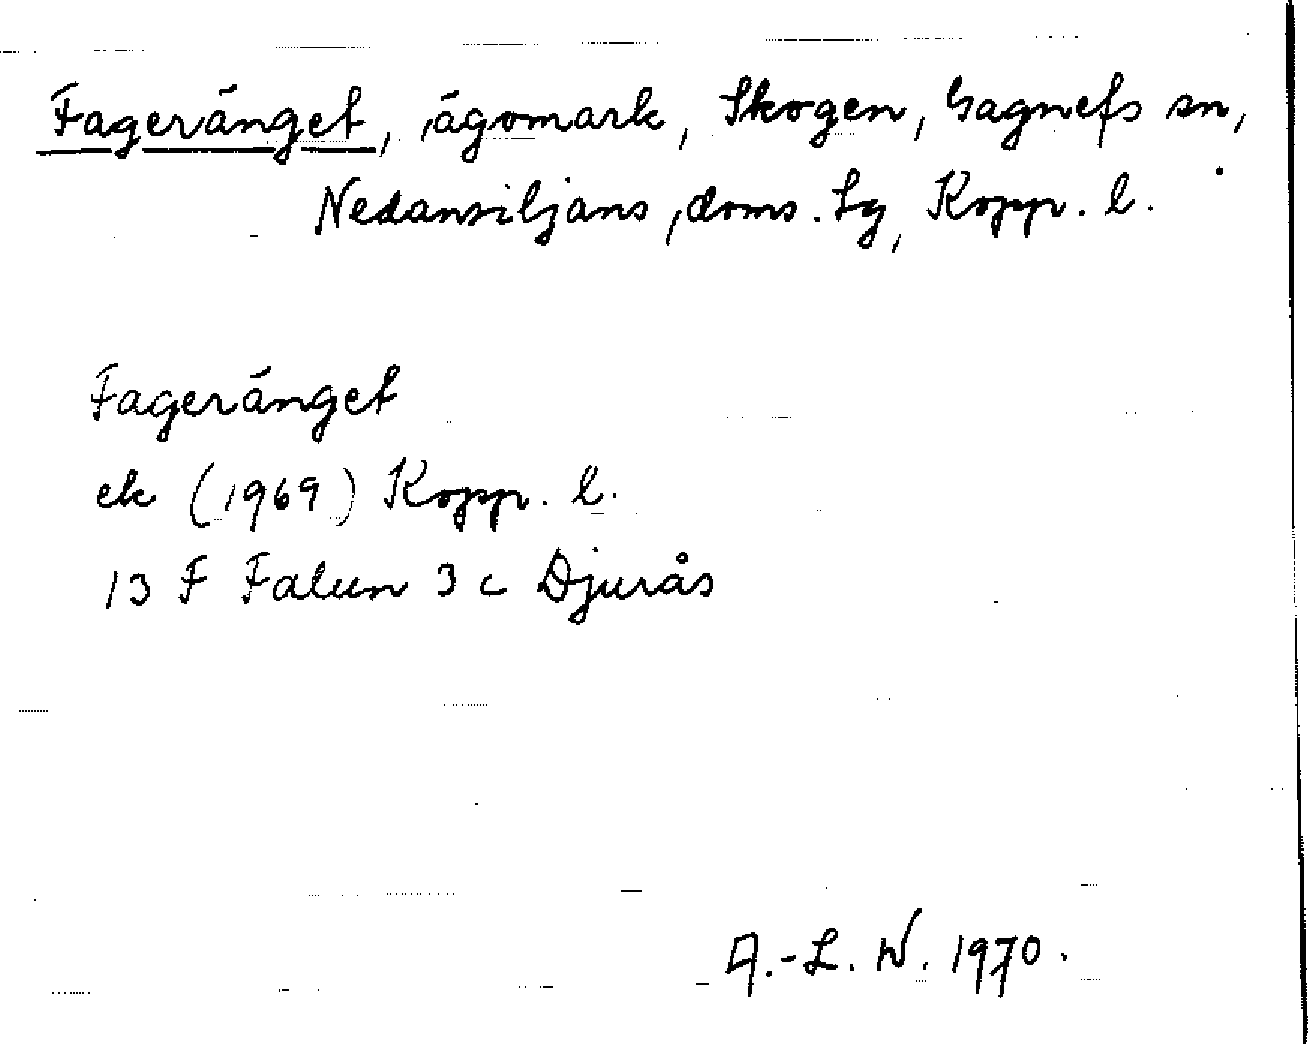 Fageränget, ägomark, Skogen, Gagnefs sn,
Nedansiljans, doms. Lg, Kopp. l.
Fageränget
ek (1969) Kopp. l.
13 F Falun 3 c Djurås
A.-L. W. 1970.